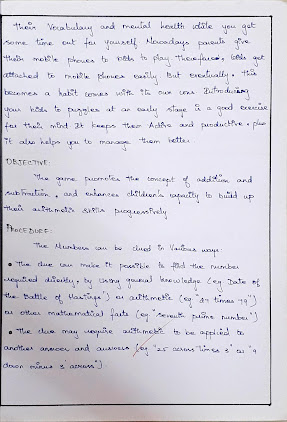 Their Vocabulary and mental health while you get
some time out for yourself Nowadays parents give
their mobile phones to kids to play Therefore, kids get
attached to mobile phones easily But eventually, this
becomes a habit comes with its own cons Introducing
your kids to puzzles at an early stage is a good exercise
for their mind It keeps their Active and productive. plus
it also helps you to manage them better
OBJECTIVE:
The game promotes the concept of addition and
subtraction, and enhances children's capacity to build up
their arithmetic skills progressively
PROCEDURE:
The Numbers can be clued in Various ways:
• The clue can make it possible to find the number
required directly, by Using general knowledge (eg "Date of
the Battle of Hastings") or arithmetic (eg "27 times 79")
or other mathematical facts (eg "seventh prime number")
• The clue may require arithmetic to be applied to
another answer and answers (eg "25 across times 3" or "9
down minus 3 across")